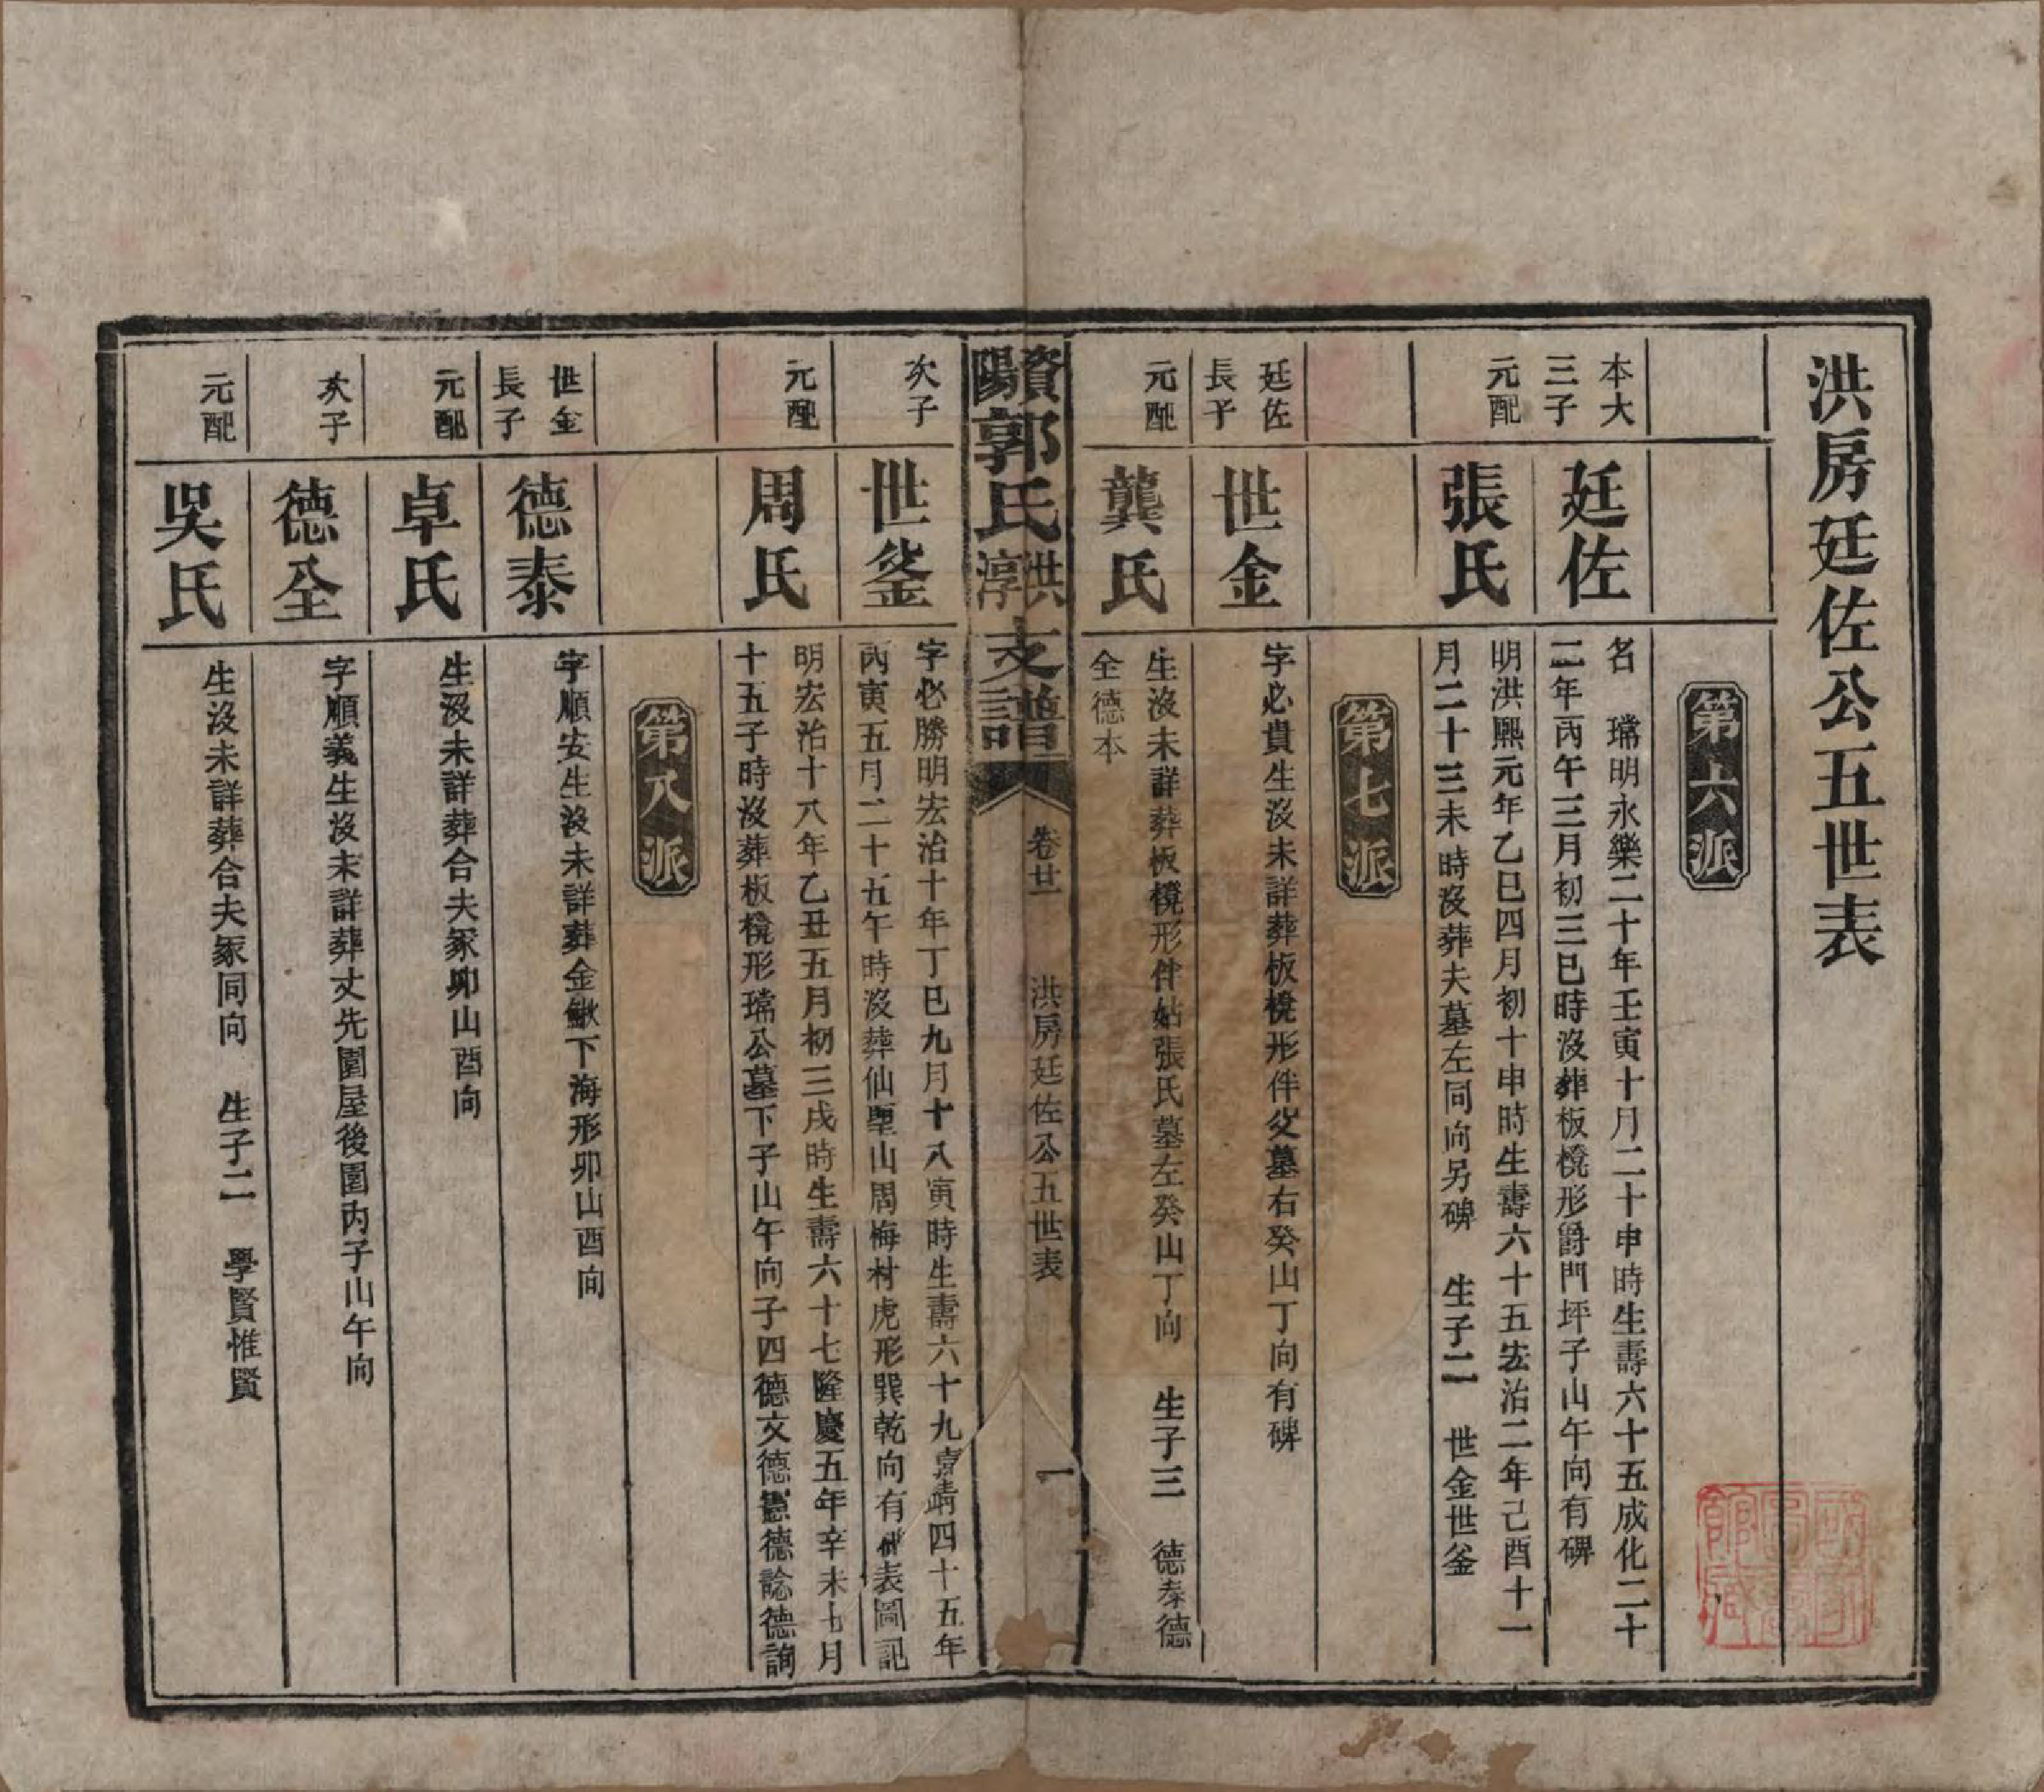 洪房廷佐公五世表
第六派
本大
三子
廷佐
名　璫明永樂二十年壬寅十月二十申時生壽六十五成化二十
二年丙午三月初三巳時沒葬板櫈形爵門坪子山午向有碑
元配
張氏
明洪熙元年乙巳四月初十申時生壽六十五宏治二年己酉十一
月二十三未時沒葬夫墓左同向另碑　生子二　世金世釜
第七派
廷佐
長子
世金
字必貴生沒未詳葬板櫈形伴父墓右癸山丁向有碑
元配
龔氏
生沒未詳葬板櫈形伴姑張氏墓左癸山丁向　生子三　德泰德
全德本
資陽郭氏洪淳支譜
卷廿一　洪房廷佐公五世表　一
次子
世釜
字必勝明宏治十年丁巳九月十八寅時生壽六十九嘉靖四十五年
丙寅五月二十五午時沒葬仙壓山周梅村虎形巽乾向有碑表圖記
元配
周氏
明宏治十八年乙丑五月初三戌時生壽六十七隆慶五年辛未七月
十五子時沒葬板櫈形璫公墓下子山午向子四德文德憲德諗德詢
第八派
世金
長子
德泰
字順安生沒未詳葬金鰍下海形卯山酉向
元配
卓氏
生沒未詳葬合夫冢卯山酉向
次子
德全
字順義生沒未詳葬丈先園屋後園內子山午向
元配
吳氏
生沒未詳葬合夫冢同向　生子二　學賢惟賢